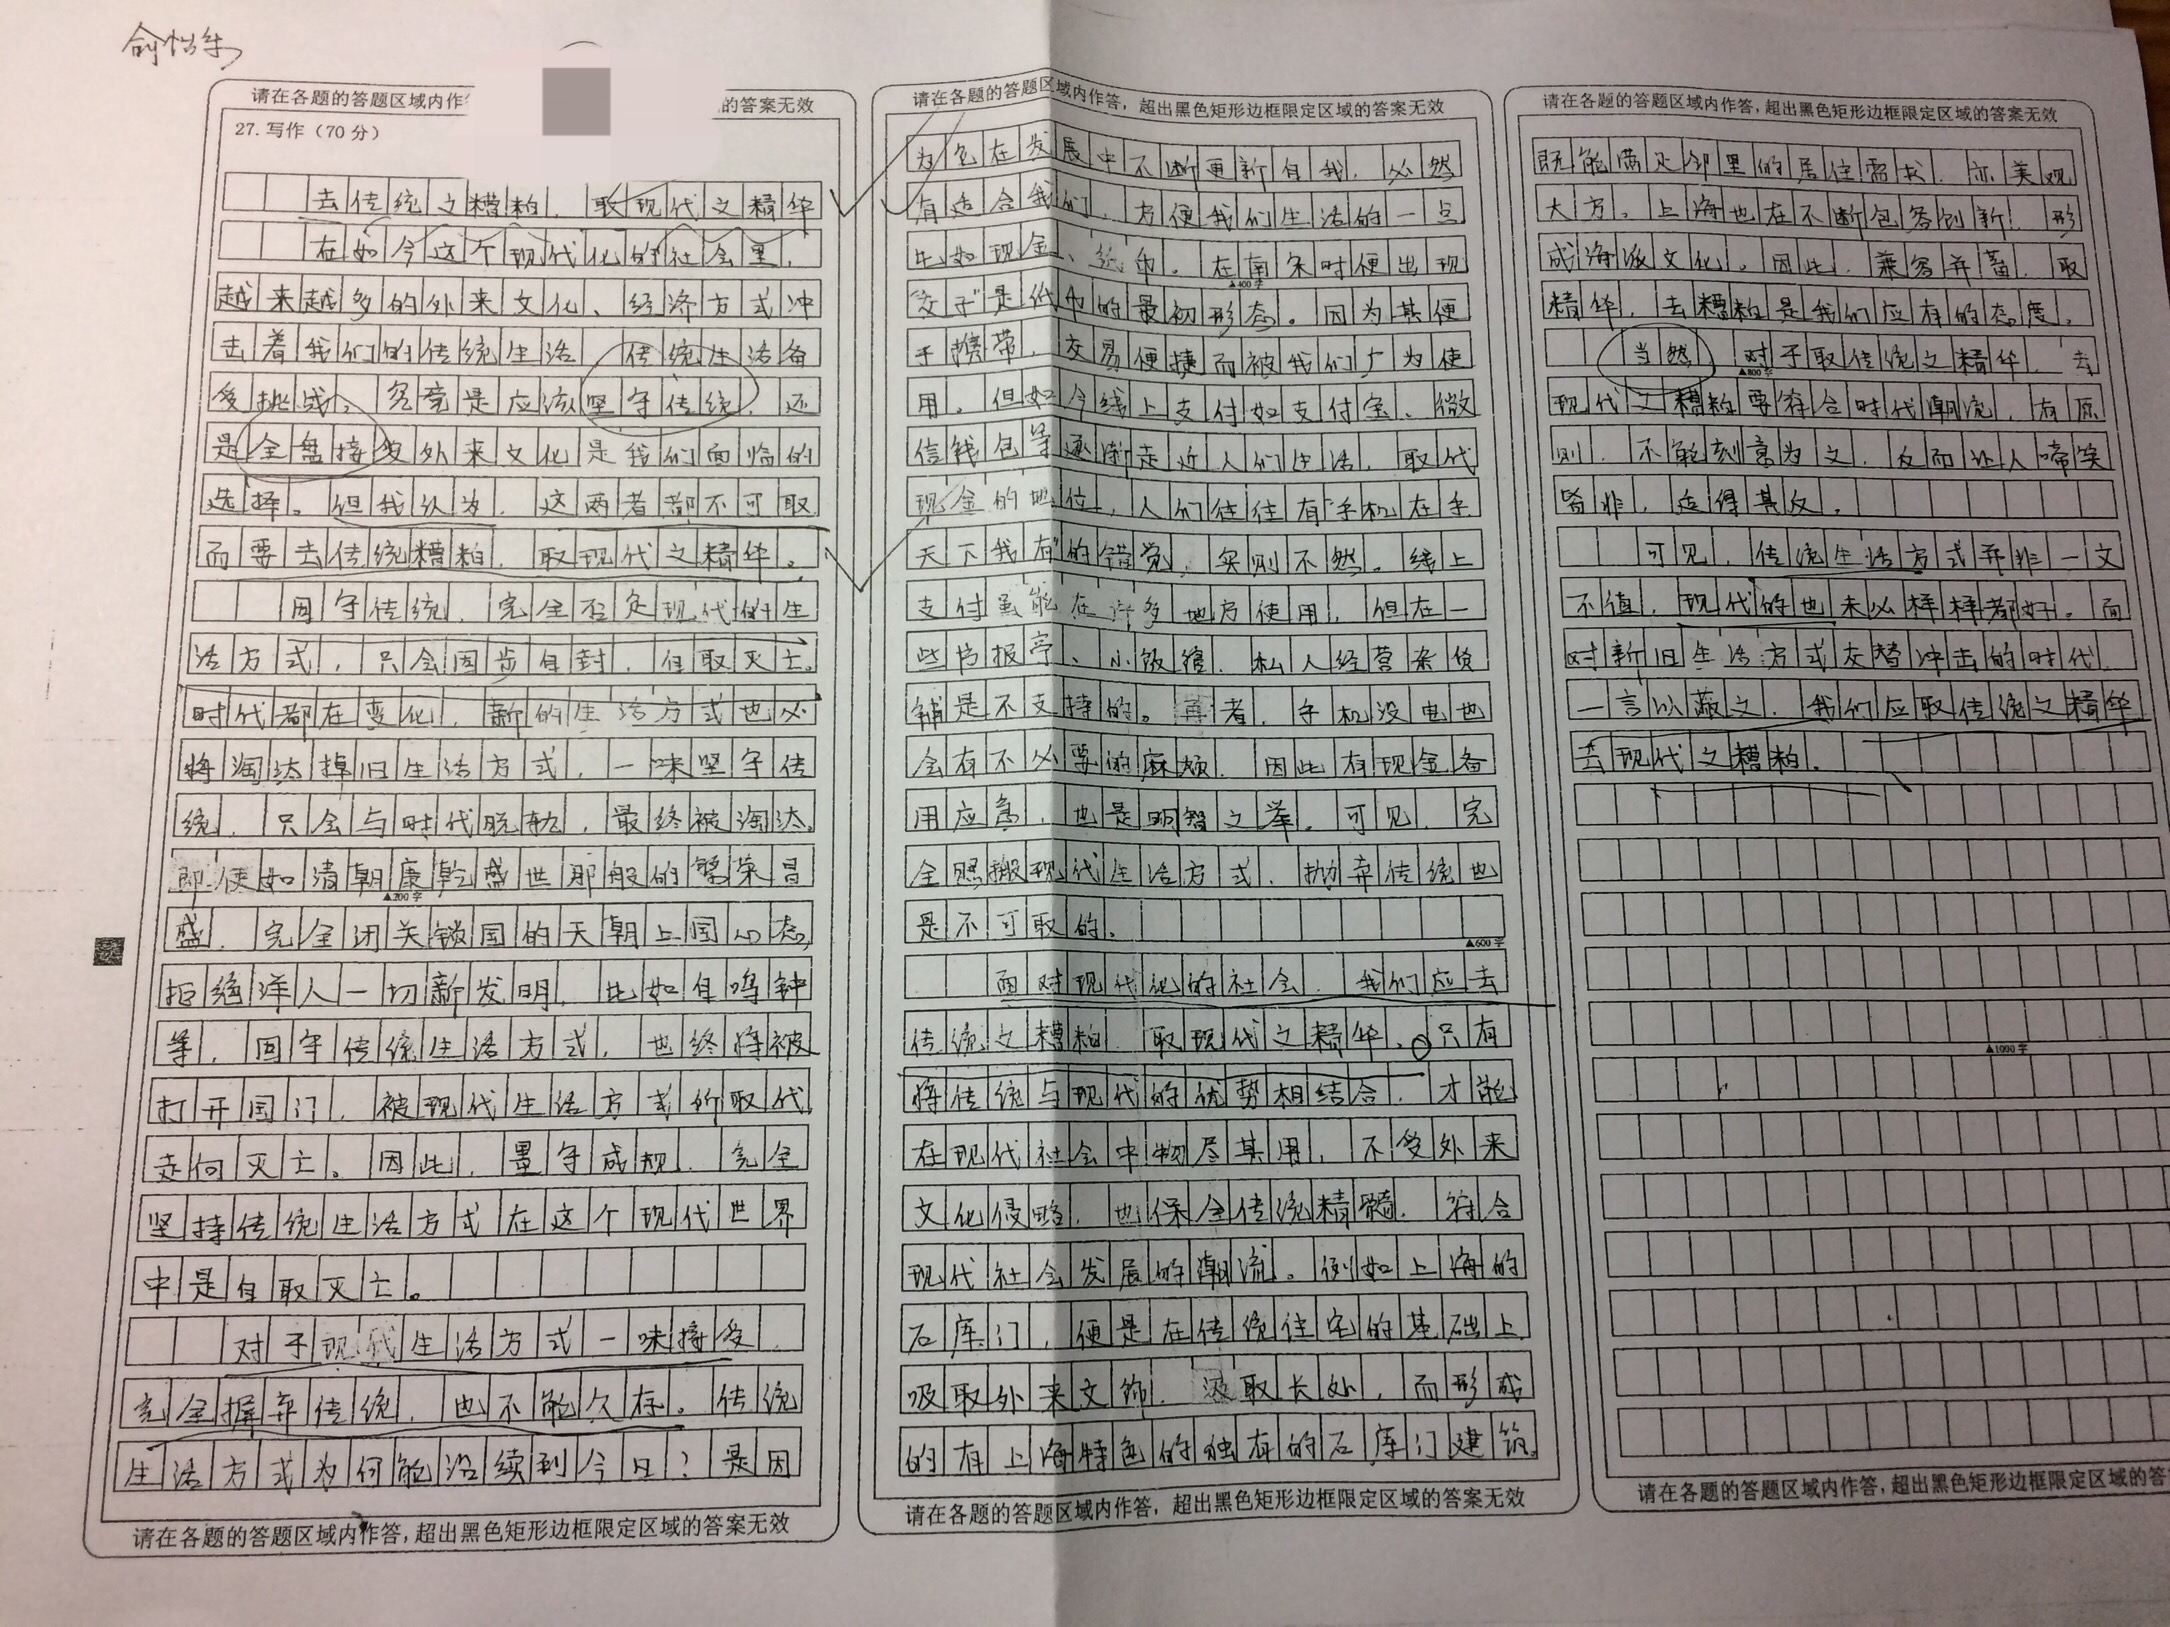 请在各题的答题区域内作
的答案无效
27.写作（70分）
去传统之糟粕，取现代之精华
在如今这个现代化的社会里，
越来越多的外来文化、经济方式冲
击着我们的传统生活，传统生活备
受挑战。究竟是应该坚守传统，还
是全盘接受外来文化是我们面临的
选择。但我认为，这两者都不可取
而要去传统糟粕，取现代之精华。
固守传统，完全否定现代的生
活方式，只会固步自封，自取灭亡。
时代都在变化，新的生活方式也必
将淘汰掉旧生活方式，一味坚守传
统，只会与时代脱轨，最终被淘汰。
即便如清朝康乾盛世那般的繁荣昌
▲200字
盛，完全闭关锁国的天朝上国心态，
拒绝洋人一切新发明，比如自鸣钟
等，固守传统生活方式，也终将被
打开国门，被现代生活方式所取代，
走向灭亡。因此，墨守成规，完全
坚持传统生活方式在这个现代世界
中是自取灭亡。
对于现代生活方式一味接受，
完全摒弃传统，也不能久存。传统
生活方式为何能沿续到今日？是因
请在各题的答题区域内作答，超出黑色矩形边框限定区域的答案无效
请在各题的答题区域内作答，超出黑色矩形边框限定区域的答案无效
为它在发展中不断更新自我，必然
有适合我们，方便我们生活的一点
比如现金、纸币。在南宋时便出现
▲400字
“交子”是纸币的最初形态。因为其便
于携带，交易便捷而被我们广为使
用。但如今线上支付如支付宝、微
信钱包等逐渐走近人们生活，取代
现金的地位，人们往往有“手机在手
天下我有”的错觉，实则不然。线上
支付虽能在许多地方使用，但在一
些书报亭、小饭馆，私人经营杂货
铺是不支持的。再者，手机没电也
会有不必要的麻烦，因此有现金备
用应急，也是明智之举。可见，完
全照搬现代生活方式，抛弃传统也
是不可取的。
▲600字
面对现代化的社会，我们应去
传统之糟粕，取现代之精华。只有
将传统与现代的优势相结合，才能
在现代社会中物尽其用，不受外来
文化侵略，也保全传统精髓，符合
现代社会发展的潮流。例如上海的
石库门，便是在传统住宅的基础上
吸取外来文饰，汲取长处，而形成
的有上海特色的独有的石库门建筑。
请在各题的答题区域内作答，超出黑色矩形边框限定区域的答案无效
请在各题的答题区域内作答，超出黑色矩形边框限定区域的答案无效
既能满足邻里的居住需求，亦美观
大方。上海也在不断包容创新！形
成海派文化。因此，兼容并蓄，取
精华，去糟粕是我们应有的态度。
当然，对于取传统之精华，去
▲800字
现代之糟粕要符合时代潮流，有原
则，不能刻意为文，反而让人啼笑
皆非，适得其反。
可见，传统生活方式并非一文
不值，现代的也未必样样都好。面
对新旧生活方式交替冲击的时代，
一言以蔽之，我们应取传统之精华
去现代之糟粕。
▲1000字
请在各题的答题区域内作答，超出黑色矩形边框限定区域的答